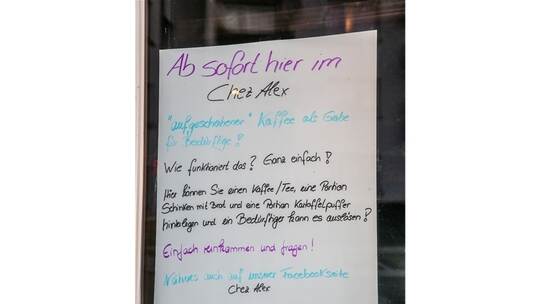 Ab sofort hier im
Chez Alex
"aufgeschobener" Kaffee als Gabe
für Bedürftige!
Wie funktioniert das? Ganz einfach!
Hier können Sie einen Kaffee/Tee, eine Portion
Schinken mit Brot und eine Portion Kartoffelpuffer
hinterlegen und ein Bedürftiger kann es auslösen!
Einfach reinkommen und fragen!
Näheres auch auf unserer Facebookseite
Chez Alex